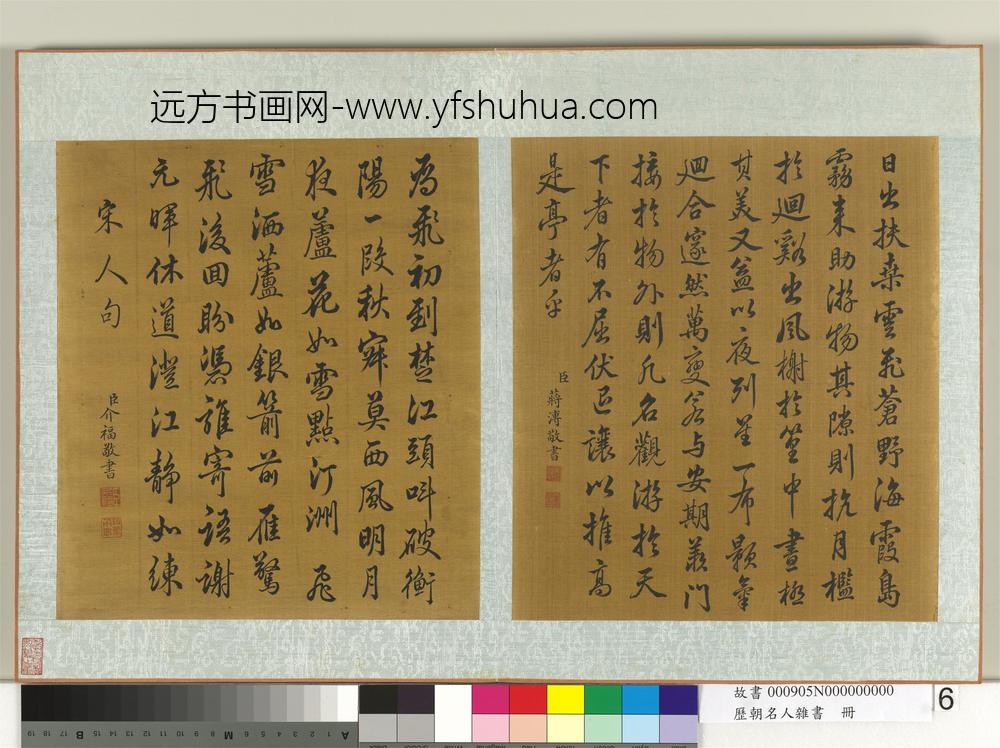 远方书画网-www.yfshuhua.com
日出扶桑雲飛蒼野海霞島
霧來助游物其隙則抗月檻
於迴谿出風榭於篁中晝極
其美又益以夜列星下布顥氣
迴合邃然萬變若与安期羨門
接於物外則凡名觀游於天
下者有不屈伏退讓以推高
是亭者乎
臣蔣溥敬書
為飛初到楚江頭叫破衡
陽一段秋寐莫西風明月
夜蘆花如雪點汀洲 飛
雪洒蘆如銀箭前雁驚
飛後回盼憑誰寄語謝
元暉休道澄江靜如練
宋人句
臣介福敬書
故書 000905N000000000
歷朝名人雜書 冊
6